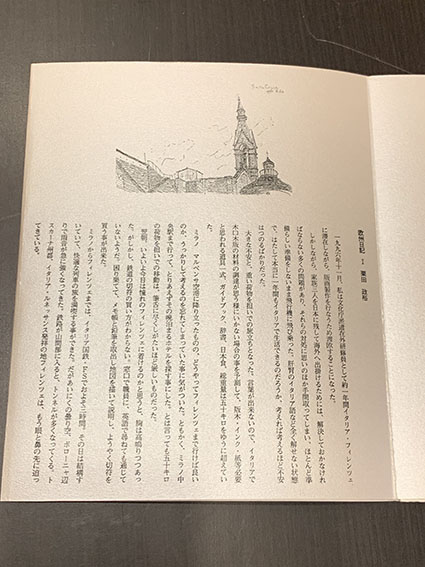 欧州日記
栗田 政裕
一九九六年十一月、私は文化庁派遣在外研修員として約一年間イタリア・フィレンツェ
に滞在しながら、版画制作を行なうため渡欧することになった。
しかしながら、家族三人を日本に残して海外へ出掛けるためには、解決しておかなけれ
ばならない多くの問題があり、それらの対処に思いのほか手間取ってしまい、ほとんど準
備らしい準備をしないまま飛行機に飛び乗った。肝腎のイタリア語など全く解せない状態
で、はたして本当に一年間もイタリアで生活できるのだろうか、考えれば考えるほど不安
はつのるばかりだった。
大きな不安と、重い荷物を担いでの旅立ちとなった。言葉が出来ないので、イタリアで
木口木版の材料の調達が思う様にいかない場合の事を予測して、版木・インク・紙等必要
と思われる道具一式、ガイドブック、辞書、日本食、総重量は五十キロをゆうに超えてい
た。
ミラノ マルペンサ空港に降り立ったものの、どうやってフィレンツェまで行けば良い
のか、うっかりして考えるのを忘れてしまっていた事に気がついた。ともかく、ミラノ中
央駅まで行って、とりあえずその晩泊まるホテルを探す事にした。とは言っても五十キロ
の荷物を担いでの移動は、筆舌に尽くしがたいほど厳しいものだった。
翌朝、いよいよ今日は憧れのフィレンツェに着けるのかと思うと、胸は高鳴りつつあっ
た。がしかし、鉄道の切符の買い方がわからない。窓口で職員に、英語で尋ねても通じて
いないようだ。困り果てて、メモ帳と鉛筆を取出し地図を描いて説明し、ようやく切符を
買う事が出来た。
ミラノからフィレンツェまでは、イタリア国鉄・FSでおよそ三時間。その日は結構す
いていて、快適な列車の旅を楽しむ事ができた。だがあいにくの曇り空。ボローニャ辺
りで雨音が急に強くなってきた。鉄路が山間部に入ると、トンネルが多くなってくる。ト
スカーナ州都、イタリア・ルネッサンス発祥の地フィレンツェは、もう眼と鼻の先に迫っ
てきている。